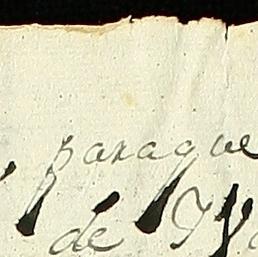 paraque
de